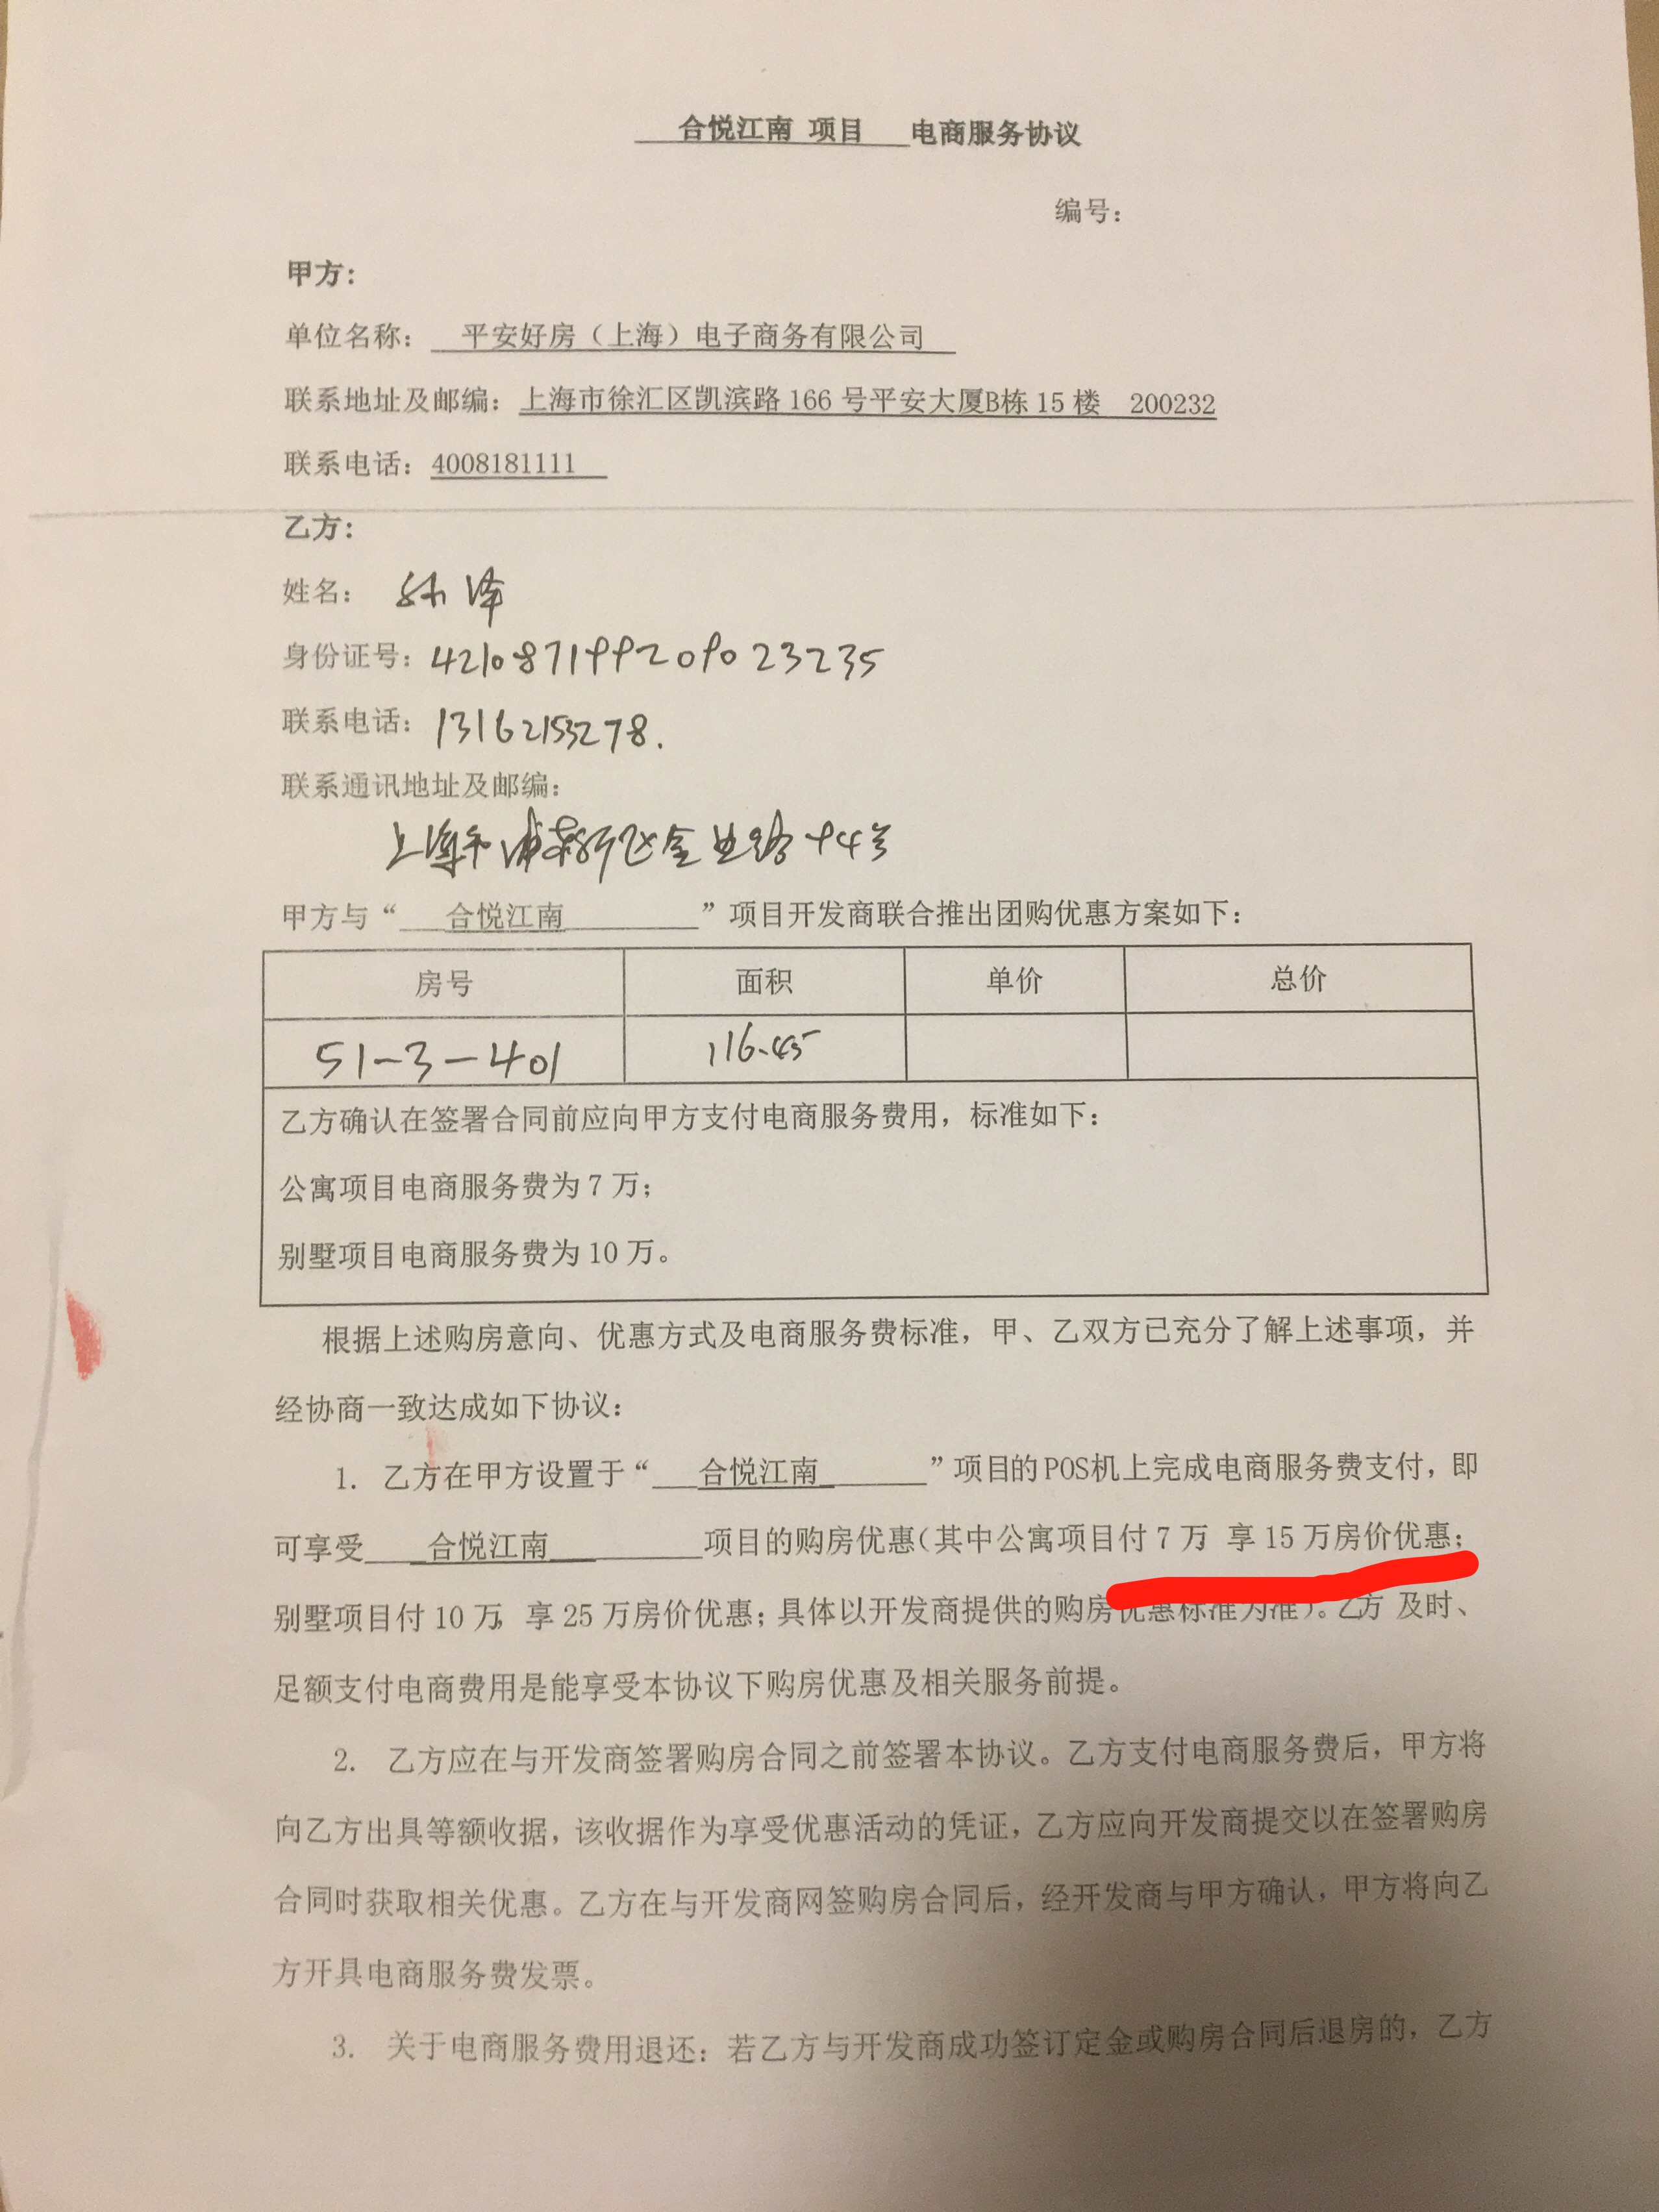 合悦江南 项目 电商服务协议
编号：
甲方：
单位名称： 平安好房（上海）电子商务有限公司
联系地址及邮编：上海市徐汇区凯滨路 166 号平安大厦B栋 15 楼 200232
联系电话：4008181111
乙方：
姓名： 孙泽
身份证号：421087199209023235
联系电话：13162153278.
联系通讯地址及邮编：
上海市浦东新区金业路94号
甲方与“ 合悦江南 ”项目开发商联合推出团购优惠方案如下：
房号 面积 单价 总价
51-3-401 116.45
乙方确认在签署合同前应向甲方支付电商服务费用，标准如下：
公寓项目电商服务费为 7 万；
别墅项目电商服务费为 10 万。
根据上述购房意向、优惠方式及电商服务费标准，甲、乙双方已充分了解上述事项，并
经协商一致达成如下协议：
1. 乙方在甲方设置于“ 合悦江南 ”项目的 POS机上完成电商服务费支付，即
可享受 合悦江南 项目的购房优惠（其中公寓项目付 7 万 享 15 万房价优惠；
别墅项目付 10 万，享 25 万房价优惠；具体以开发商提供的购房优惠标准为准）。乙方 及时、
足额支付电商费用是能享受本协议下购房优惠及相关服务前提。
2. 乙方应在与开发商签署购房合同之前签署本协议。乙方支付电商服务费后，甲方将
向乙方出具等额收据，该收据作为享受优惠活动的凭证，乙方应向开发商提交以在签署购房
合同时获取相关优惠。乙方在与开发商网签购房合同后，经开发商与甲方确认，甲方将向乙
方开具电商服务费发票。
3. 关于电商服务费用退还：若乙方与开发商成功签订定金或购房合同后退房的，乙方